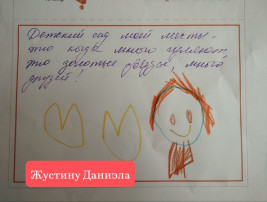 Детский сад моей мечты -
это когда много гуляют
это золотые звёзды, много
друзей!
Жустину Даниэла